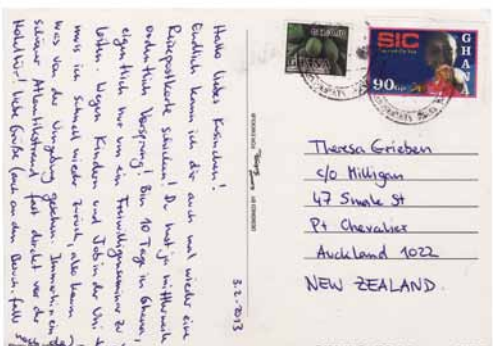 Hallo liebes Kusinchen!
Endlich kann ich dir auch mal wieder eine
Reisepostkarte schicken! Du hast ja mittlerweile
ordentlich Vorsprung! Bin 10 Tage in Ghana,
eigentlich nur um ein Freiwilligenseminar zu
leiten. Wegen Kindern und Job in der Uni
muss ich schnell wieder zurück, also kaum
was von der Umgebung gesehen. Immerhin ein
schöner Atlantikstrand fast direkt vor der
Haustür! Liebe Grüße (auch an den Besuch falls
3.2.2013
GHANA
SIC
GHANA
90Gp
Theresa Grieben
c/o Milligan
47 Smale St
Pt Chevalier
Auckland 1022
NEW ZEALAND.